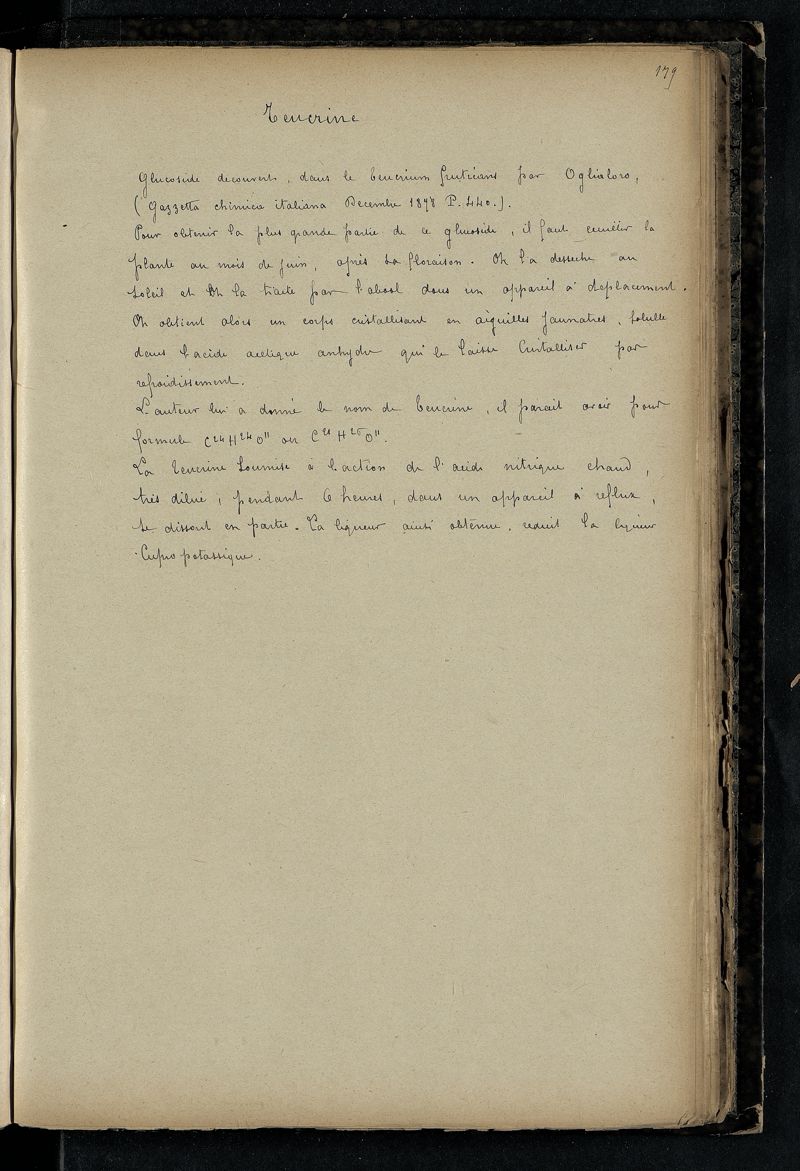 179
Teucrine
Glucoside decouvert, dans le teucrium fruticans par Oglialoro,
(Gazzetta chimica italiana Decembre 1878 P. 440.).
Pour obtenir la plus grande partie de ce glucoside, il faut cueillir la
plante au mois de juin, après sa floraison. On la desseche au
soleil et On la traite par l'alcool dans un appareil à deplacement.
On obtient alors un corps cristallisant en aiguilles jaunatres, soluble
dans l'acide acetique anhydre qui le laisse Cristalliser par
refroidissement.
L'auteur lui a donné le nom de teucrine, il parait avoir pour
formule C²⁴H²⁴O¹¹ ou C²¹H²⁰O¹¹.
La Teucrine soumise à l'action de l'acide nitrique chaud,
très dilué, pendant 6 heures, dans un appareil à reflux,
se dissout en partie. La liqueur ainsi obtenue, reduit la liqueur
Cupro potassique.